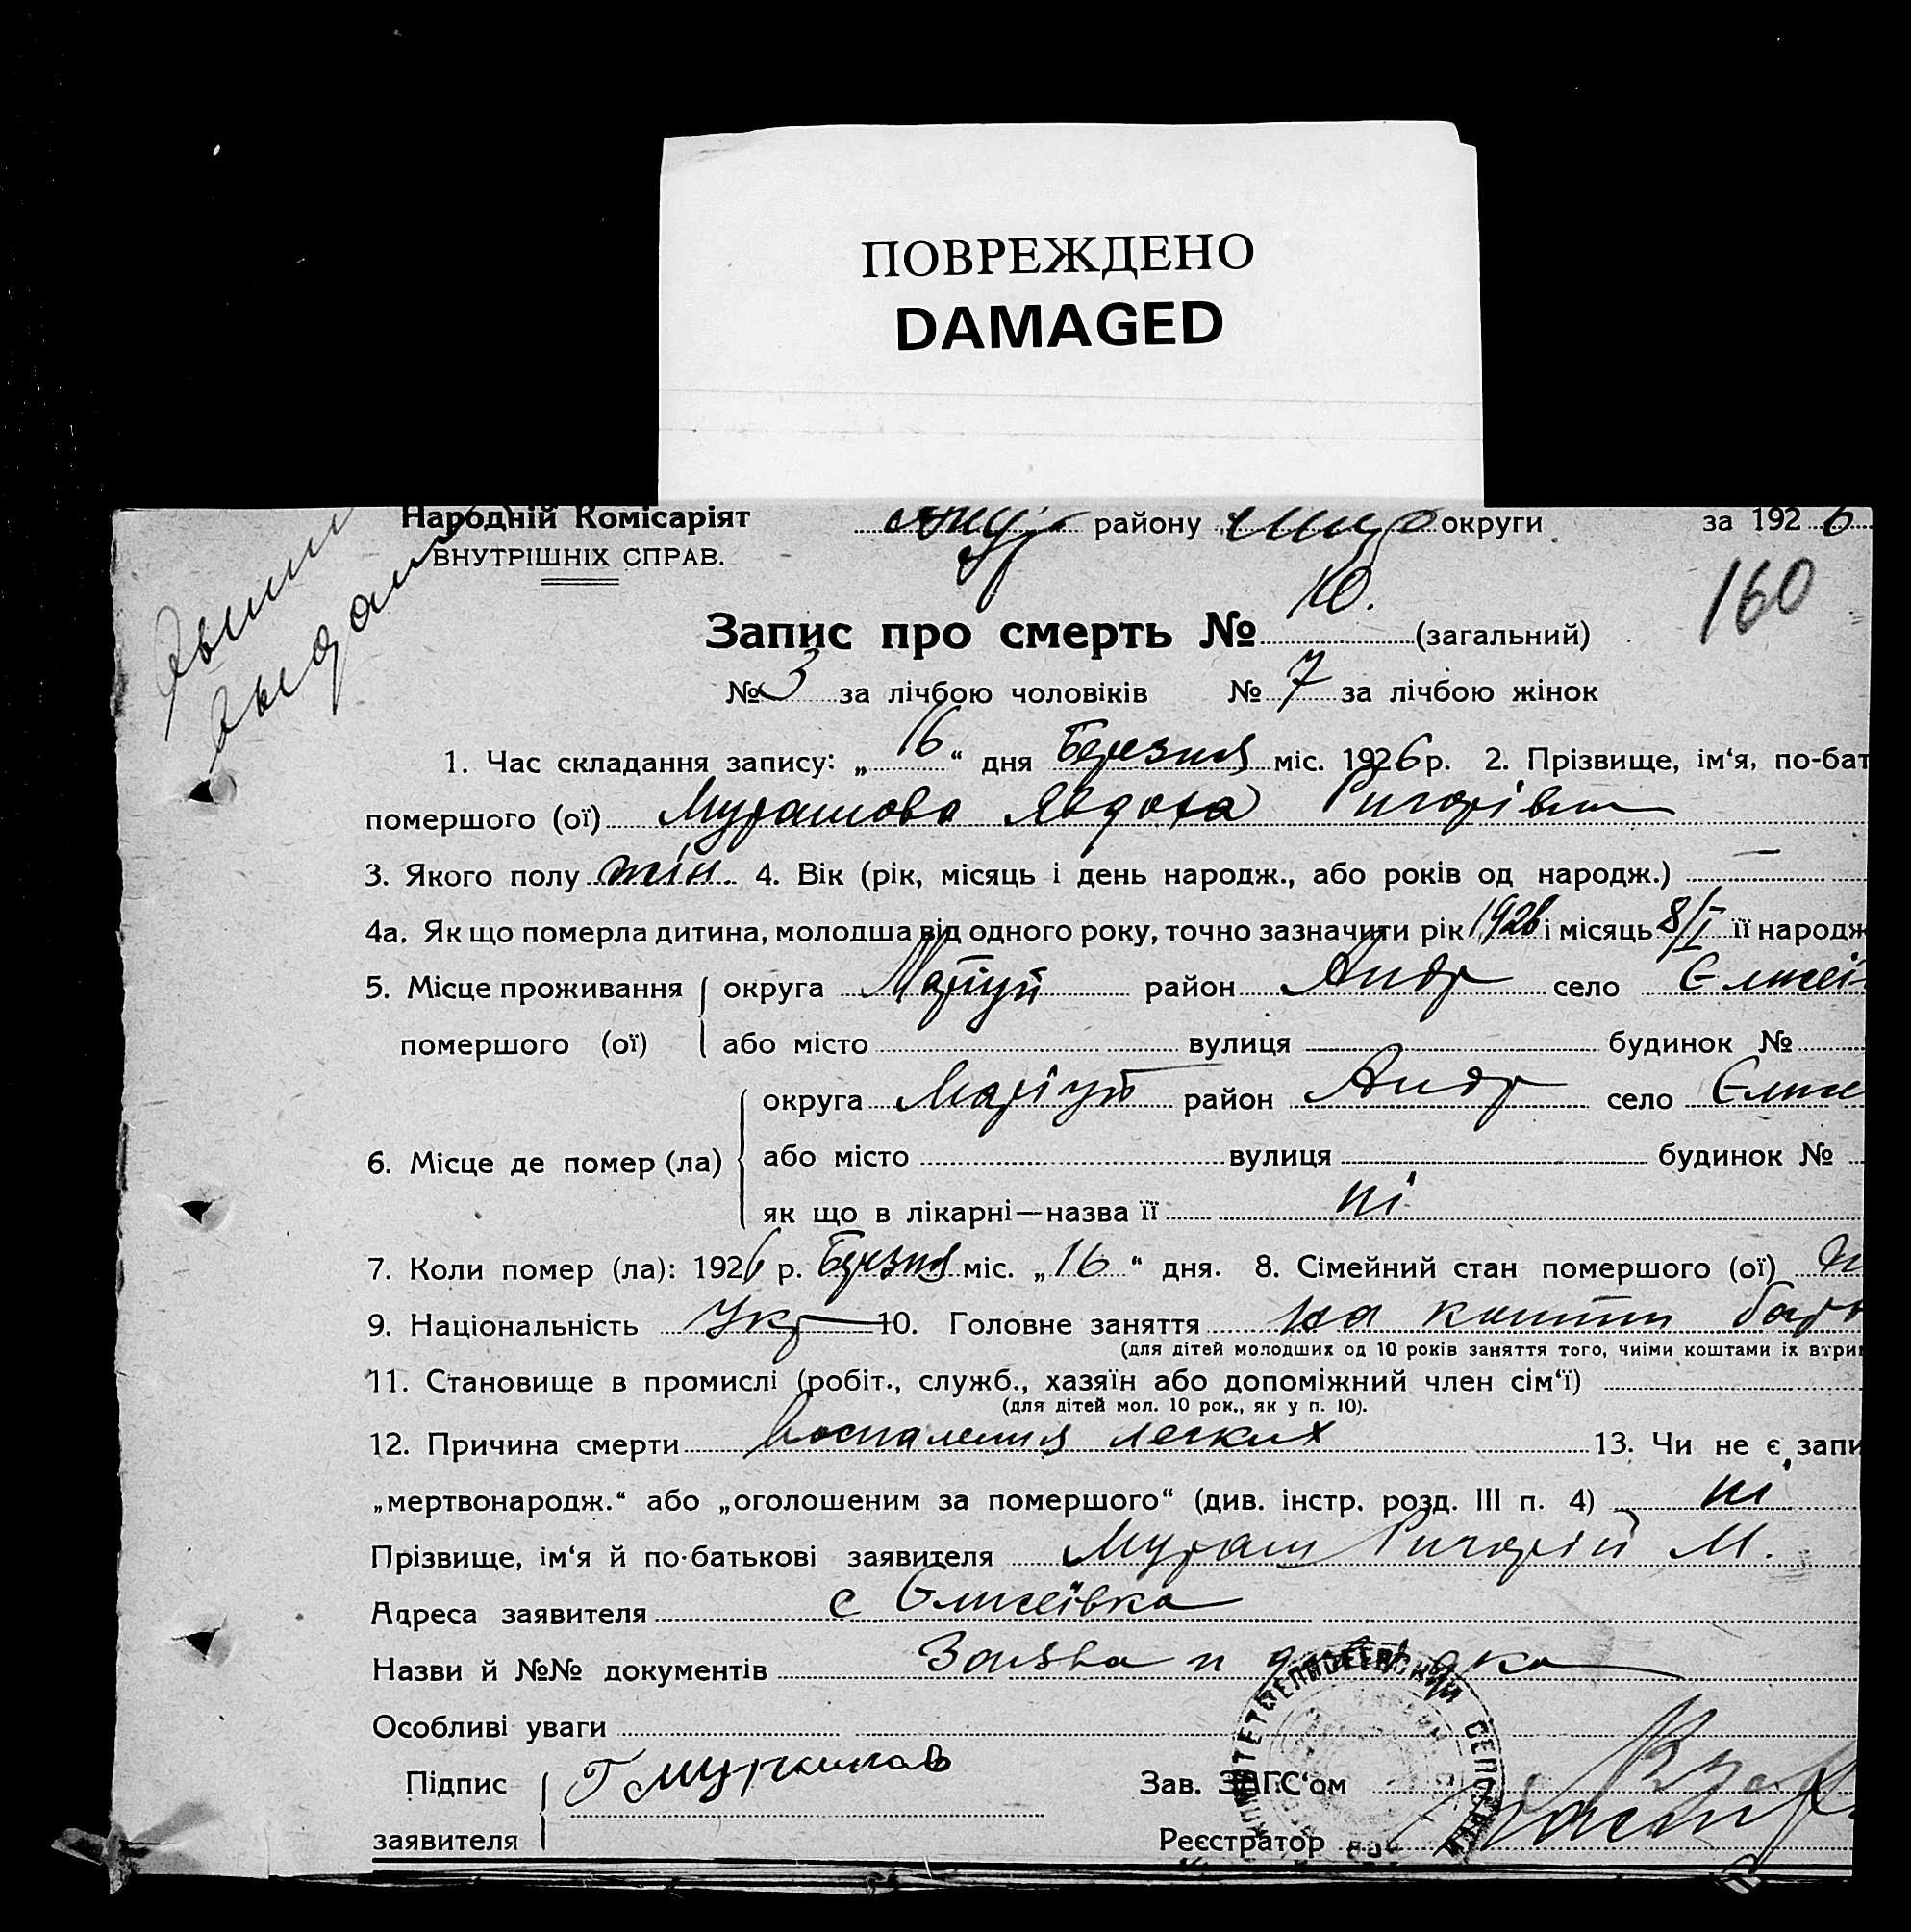 ПОВРЕЖДЕНО
DAMAGED
Народній Комісаріят району округи за 1926
ВНУТРІШНІХ СПРАВ.
160
Запис про смерть № 10. (загальний)
№ 3 за лічбою чоловіків № 7 за лічбою жінок
1. Час складання запису: „16“ дня Березня міс. 1926 р. 2. Прізвище, ім‘я, по-бат
помершого (ої) Мурашова Явдоха Григорівна
3. Якого полу жін. 4. Вік (рік, місяць і день народж., або років од народж.) —
4а. Як що померла дитина, молодша від одного року, точно зазначити рік 1926 і місяць 8/I її народж
5. Місце проживання округа Маріуп район Андр село Єлисеї
помершого (ої) або місто вулиця будинок №
округа Маріуп район Андр село Єлисе
6. Місце де помер (ла) або місто вулиця будинок №
як що в лікарні—назва її ні
7. Коли помер (ла): 1926 р. Березня міс. „16“ дня. 8. Сімейний стан помершого (ої)
9. Національність Укр 10. Головне заняття на кошти бать
(для дітей молодших од 10 років заняття того, чиїми коштами їх втрим
11. Становище в промислі (робіт., служб., хазяїн або допоміжний член сім‘ї)
(для дітей мол. 10 рок., як у п. 10).
12. Причина смерти воспаления легких 13. Чи не є запи
„мертвонародж.“ або „оголошеним за помершого“ (див. інстр. розд. III п. 4) ні
Прізвище, ім‘я й по-батькові заявителя Мураш Григорій М.
Адреса заявителя с Єлисеївка
Назви й №№ документів Заява
Особливі уваги
Підпис Г Мурашов Зав. ЗАГС‘ом
заявителя Реєстратор